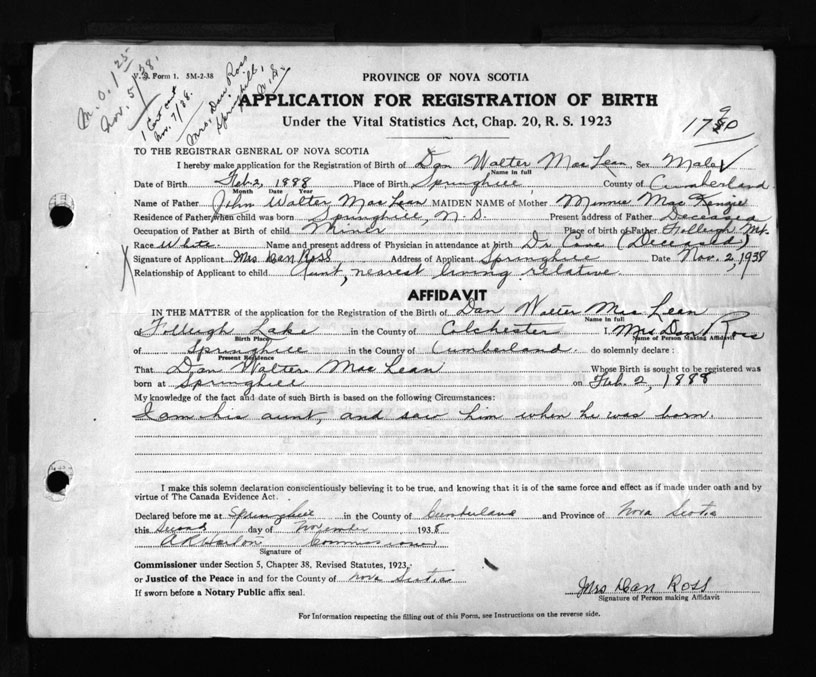 M.O. 1 25
Nov. 5/38.
V.S. Form 1. 5M-2-38
Cert out
Nov. 7/38.
Mrs. Dan Ross
Springhill,
N.S.
PROVINCE OF NOVA SCOTIA
APPLICATION FOR REGISTRATION OF BIRTH
Under the Vital Statistics Act, Chap. 20, R. S. 1923
TO THE REGISTRAR GENERAL OF NOVA SCOTIA
I hereby make application for the Registration of Birth of Dan Walter MacLean, Sex Male
Name in full
Date of Birth Feb. 2, 1888 Place of Birth Springhill, County of Cumberland
Month Date Year
Name of Father John Walter MacLean MAIDEN NAME of Mother Minnie MacKenzie
Residence of Father when child was born Springhill, N.S. Present address of Father Deceased
Occupation of Father at Birth of child Miner Place of birth of Father Folleigh Mt.
Race White Name and present address of Physician in attendance at birth Dr. (Deceased)
Signature of Applicant Mrs Dan Ross Address of Applicant Springhill Date Nov. 2, 1938
Relationship of Applicant to child Aunt, nearest living relative.
AFFIDAVIT
IN THE MATTER of the application for the Registration of the Birth of Dan Walter MacLean
Name in full
of Folleigh Lake in the County of Colchester I, Mrs Dan Ross
Birth Place Name of Person Making Affidavit
of Springhill in the County of Cumberland do solemnly declare:
Present Residence
That Dan Walter MacLean Whose Birth is sought to be registered was
born at Springhill on Feb. 2, 1888
My knowledge of the fact and date of such Birth is based on the following Circumstances:
I am his aunt, and saw him when he was born.
I make this solemn declaration conscientiously believing it to be true, and knowing that it is of the same force and effect as if made under oath and by
virtue of The Canada Evidence Act.
Declared before me at Springhill in the County of Cumberland and Province of Nova Scotia
this Second day of November 1938
Commissioner
Signature of
Commissioner under Section 5, Chapter 38, Revised Statutes, 1923,
or Justice of the Peace in and for the County of Nova Scotia
If sworn before a Notary Public affix seal.
Mrs Dan Ross
Signature of Person making Affidavit
For Information respecting the filling out of this Form, see Instructions on the reverse side.